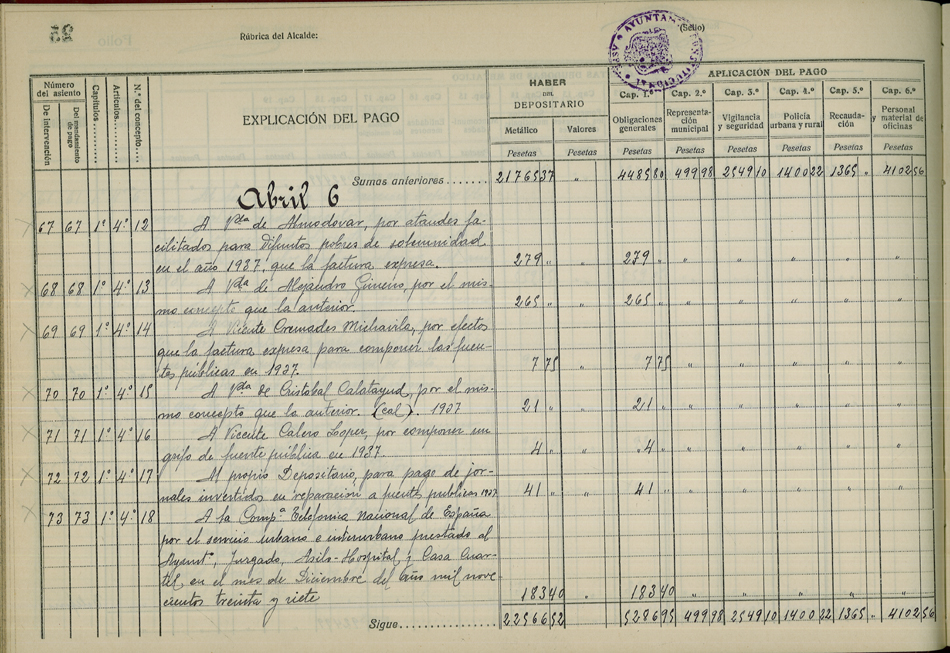 25
Rúbrica del Alcalde:
(Sello)
Número del asiento
De intervención
Del mandamiento de pago
Capítulos
Artículos
N.º del concepto
EXPLICACIÓN DEL PAGO
HABER
en
DEPOSITARIO
Metálico Valores
Pesetas Pesetas
APLICACIÓN DEL PAGO
Cap. 1.º Cap. 2.º Cap. 3.º Cap. 4.º Cap. 5.º Cap. 6.º
Obligaciones generales Representación municipal Vigilancia y seguridad Policía urbana y rural Recaudación Personal y material de oficinas
Pesetas Pesetas Pesetas Pesetas Pesetas Pesetas
Sumas anteriores....... 21765 37 „ 4485 80 499 98 2549 10 1400 22 1365 „ 4102 56
Abril 6
67 67 1º 4º 12 A Vda de Almodovar, por ataudes fa-
cilitados para difuntos pobres de solemnidad
en el año 1937, que la factura expresa. 279 „ 279 „ „ „ „ „ „
68 68 1º 4º 13 A Vda de Alejandro Gimeno, por el mis-
mo concepto que la anterior. 265 „ „ 265 „ „ „ „ „ „
69 69 1º 4º 14 A Vicente Cremades Michavila, por efectos
que la factura expresa para componer las fuen-
tes públicas en 1937. 7 75 „ 7 75 „ „ „ „ „
70 70 1º 4º 15 A Vda de Cristobal Calatayud, por el mis-
mo concepto que la anterior. (cal). 1937 21 „ „ 21 „ „ „ „ „ „
71 71 1º 4º 16 A Vicente Calero Lopez, por componer un
grifo de fuente pública en 1937. 4 „ „ 4 „ „ „ „ „ „
72 72 1º 4º 17 Al propio Depositario, para pago de jor-
nales invertidos en reparacion a fuentes publicas 1937 41 „ „ 41 „ „ „ „ „ „
73 73 1º 4º 18 A la Compª Telefonica Nacional de España
por el servicio urbano e interurbano prestado al
Ayuntº, Juzgado, Asilo-Hospital y Casa Cuar-
tel en el mes de Diciembre del año mil nove-
cientos treinta y siete 183 40 „ 183 40 „ „ „ „ „
Sigue.................. 22566 52 5286 95 499 98 2549 10 1400 22 1365 „ 4102 56